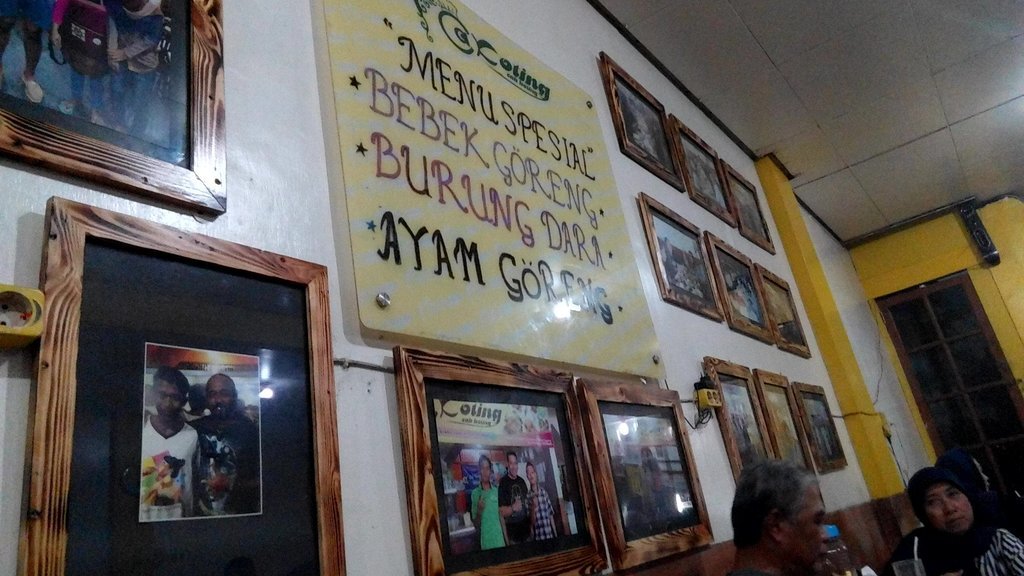 Koting
"MENU SPESIAL"
BEBEK GÖRENG
BURUNG DARA
AYAM GÖRENG
Koting